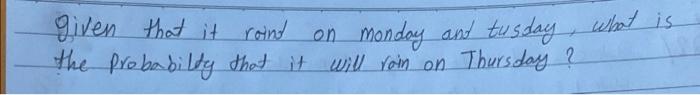 given that it raind on monday and tusday, what is
the probabildy that it will rain on Thursday ?